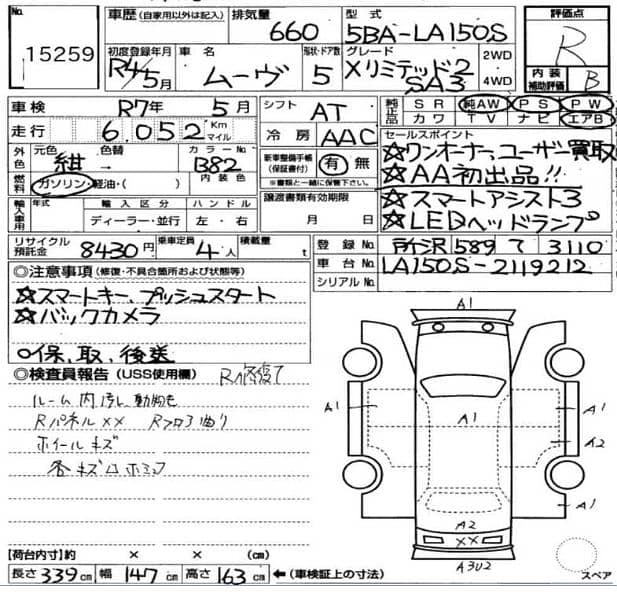 No. 15259
車歴(自家用以外は記入) 排気量 660 型式 5BA-LA150S 評価点 R
初度登録年月 R4/5月 車名 ムーヴ 形状・ドア数 5 グレード Xリミテッド2 SA3 2WD 4WD 内装補助評価 B
車検 R7年 5月 シフト AT 純正品 SR 純AW PS PW
カワ TV ナビ エアB
走行 6,052 Km マイル 冷房 AAC セールスポイント
外色 元色 紺 色替 カラーNo. B82 新車整備手帳(保証書付) 有 無 ☆ワンオーナー、ユーザー買取
※書類と一緒に保管下さい。
燃料 ガソリン・軽油・( ) 内装色 ☆AA初出品!!
輸入車用 年式 輸入区分 ハンドル 譲渡書類有効期限 ☆スマートアシスト3
ディーラー・並行 左・右 月 日 ☆LEDヘッドランプ
リサイクル預託金 8430円 乗車定員 4人 積載量 t 登録No. 589 3110
車台No. LA150S-2119212
シリアルNo.
◎注意事項(修復・不具合箇所および状態等)
☆スマートキー、プッシュスタート
☆バックカメラ
○保、取、後送
◎検査員報告(USS使用欄)
ルーム内汚し
Rパネル××
ホイールキズ
A1
A1
A1
A1
A2
A1
A2
××
A3U2
スペア
【荷台内寸】約 × × (cm)
長さ 339cm 幅 147cm 高さ 163cm ←(車検証上の寸法)